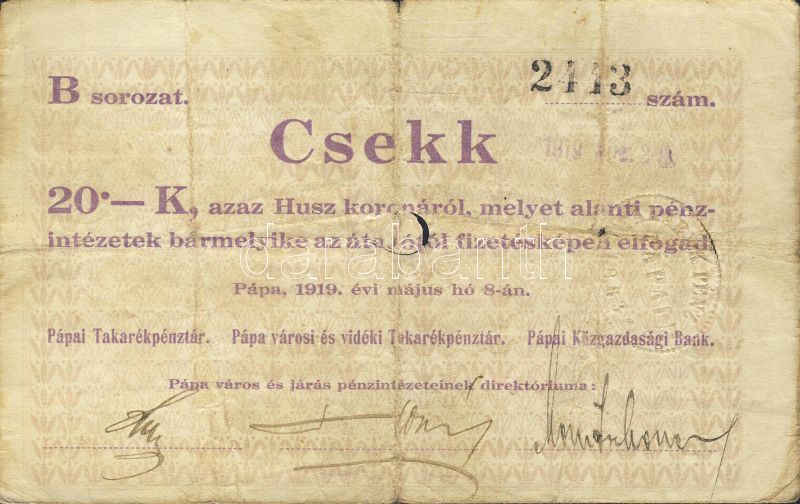 B sorozat.
2443 szám.
Csekk
20·— K, azaz Husz koronáról, melyet alanti pénz-
intézetek bármelyike az átadótól fizetésképen elfogad.
darabanth
Pápa, 1919. évi május hó 8-án.
Pápai Takarékpénztár. Pápa városi és vidéki Takarékpénztár. Pápai Közgazdasági Bank.
Pápa város és járás pénzintézeteinek direktóriuma: